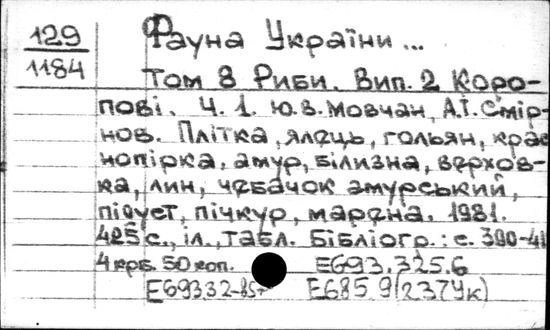 129
1184
Фауна України ...
Том 8 Риби. Вип. 2 Коро-
пові. Ч. 1. Ю.В. Мовчан, А.І. Смір-
нов. Плітка, ялець, гольян, крас
нопірка, амур, білизна, верхов-
ка, лин, чебачок амурський,
підуст, пічкур, марена. 1981.
425 с., іл., табл. Бібліогр.: с. 390-41
4 крб. 50 коп. Е693.325.6
Е69332-85+ Е685.9(2374к)